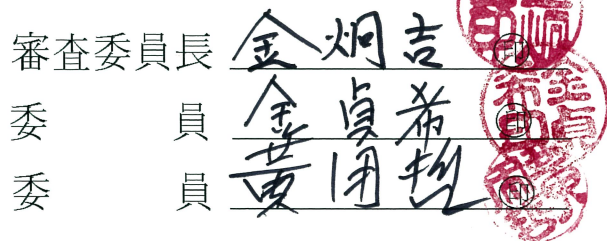 審査委員長 金炯吉 ㊞
委員 金貞希 ㊞
委員 黃用哲 ㊞